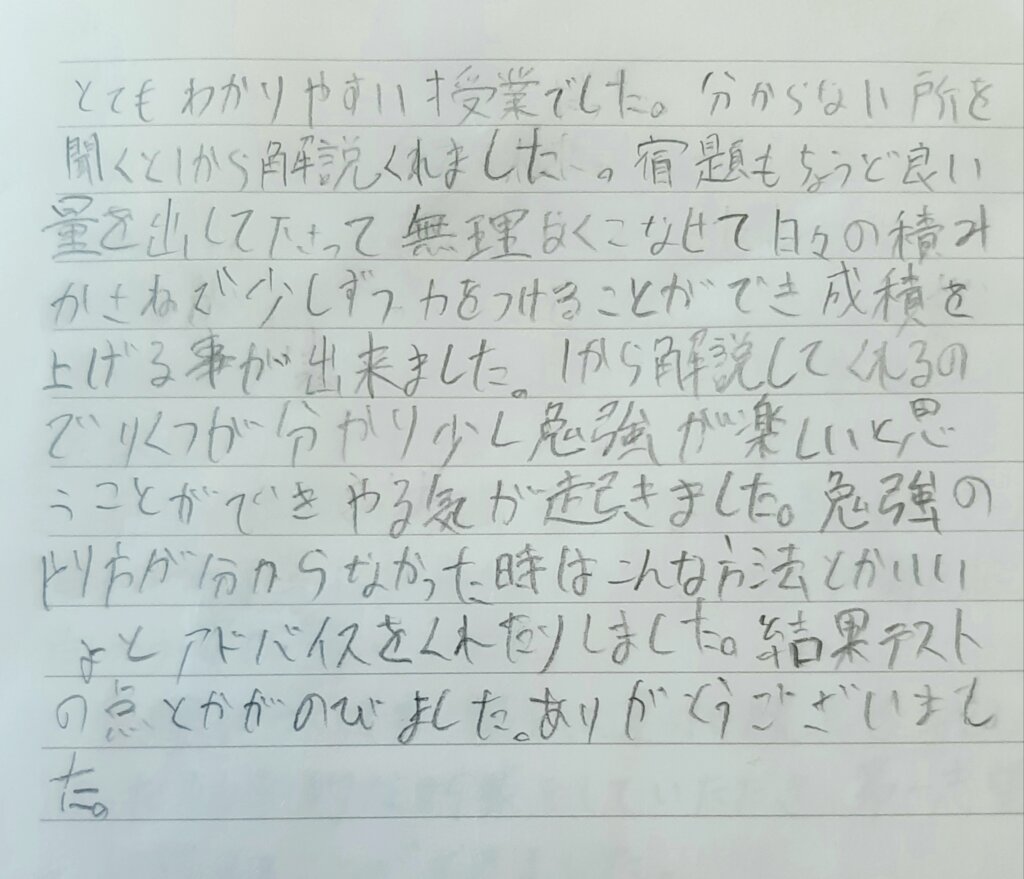 とてもわかりやすい授業でした。分からない所を
聞くと1から解説くれました。宿題もちょうど良い
量を出して下さって無理なくこなせて日々の積み
かさねで少しずつ力をつけることができ成積を
上げる事が出来ました。1から解説してくれるの
でりくつが分かり少し勉強が楽しいと思
うことができやる気が起きました。勉強の
やり方が分からなかった時はこんな方法とかいい
よとアドバイスをくれたりしました。結果テスト
の点とかがのびました。ありがとうございまし
た。